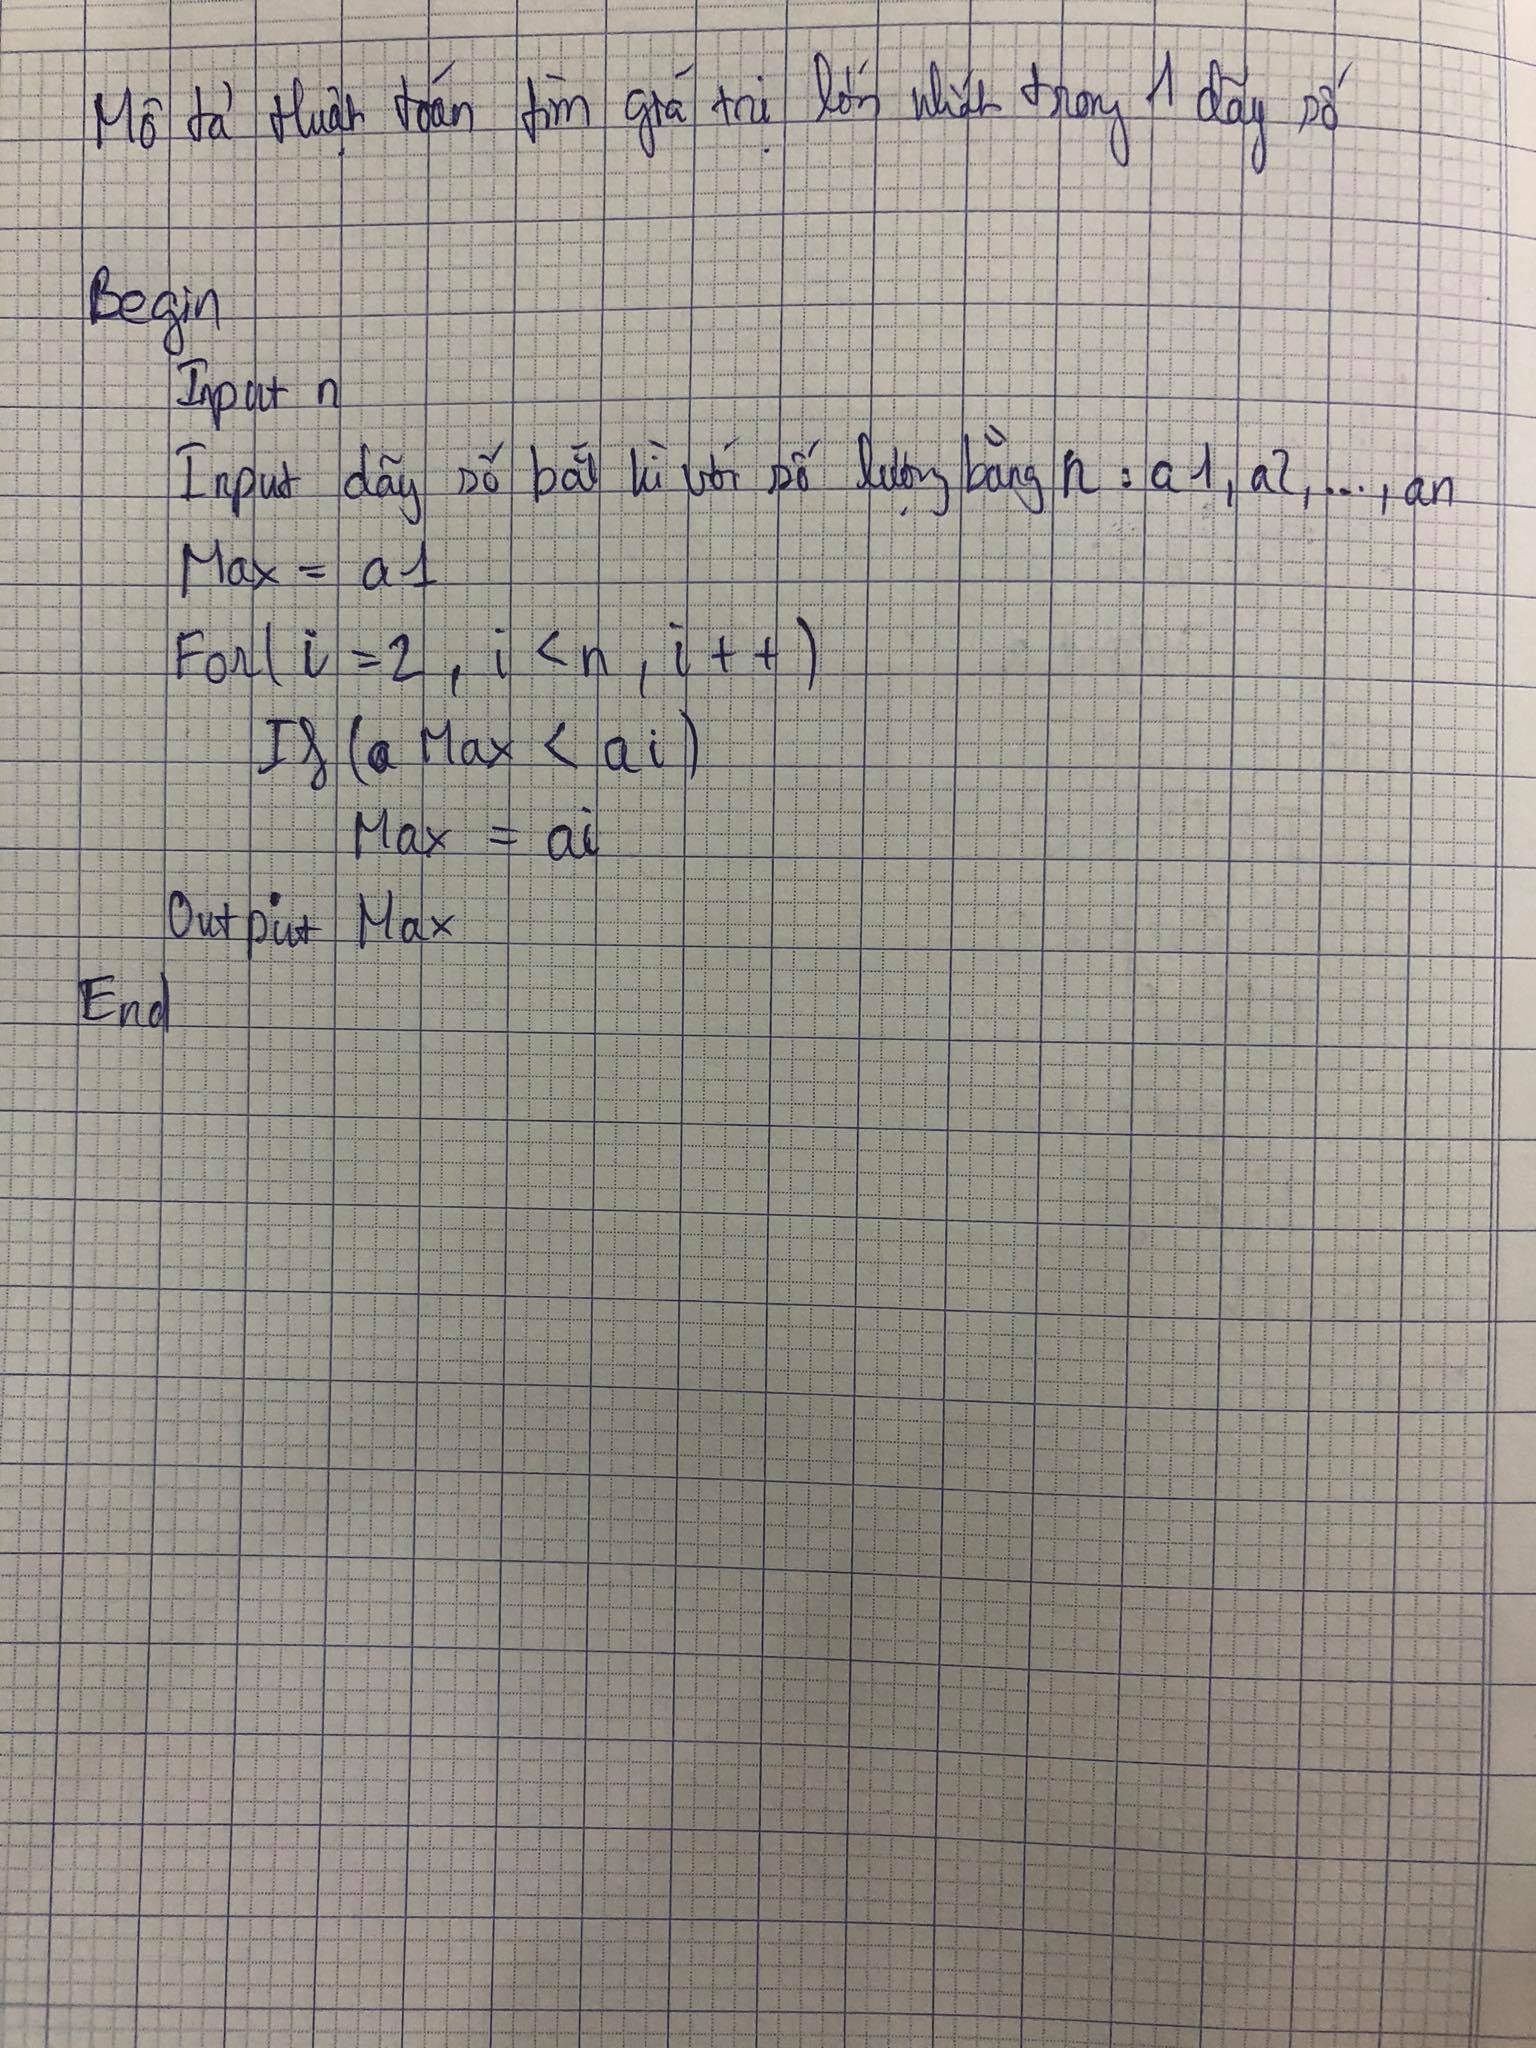 Mô tả thuật toán tìm giá trị lớn nhất trong 1 dãy số
Begin
Input n
Input dãy số bất kì với số lượng bằng n : a1, a2, ..., an
Max = a1
For( i = 2 , i < n , i + + )
If ( Max < ai )
Max = ai
Output Max
End